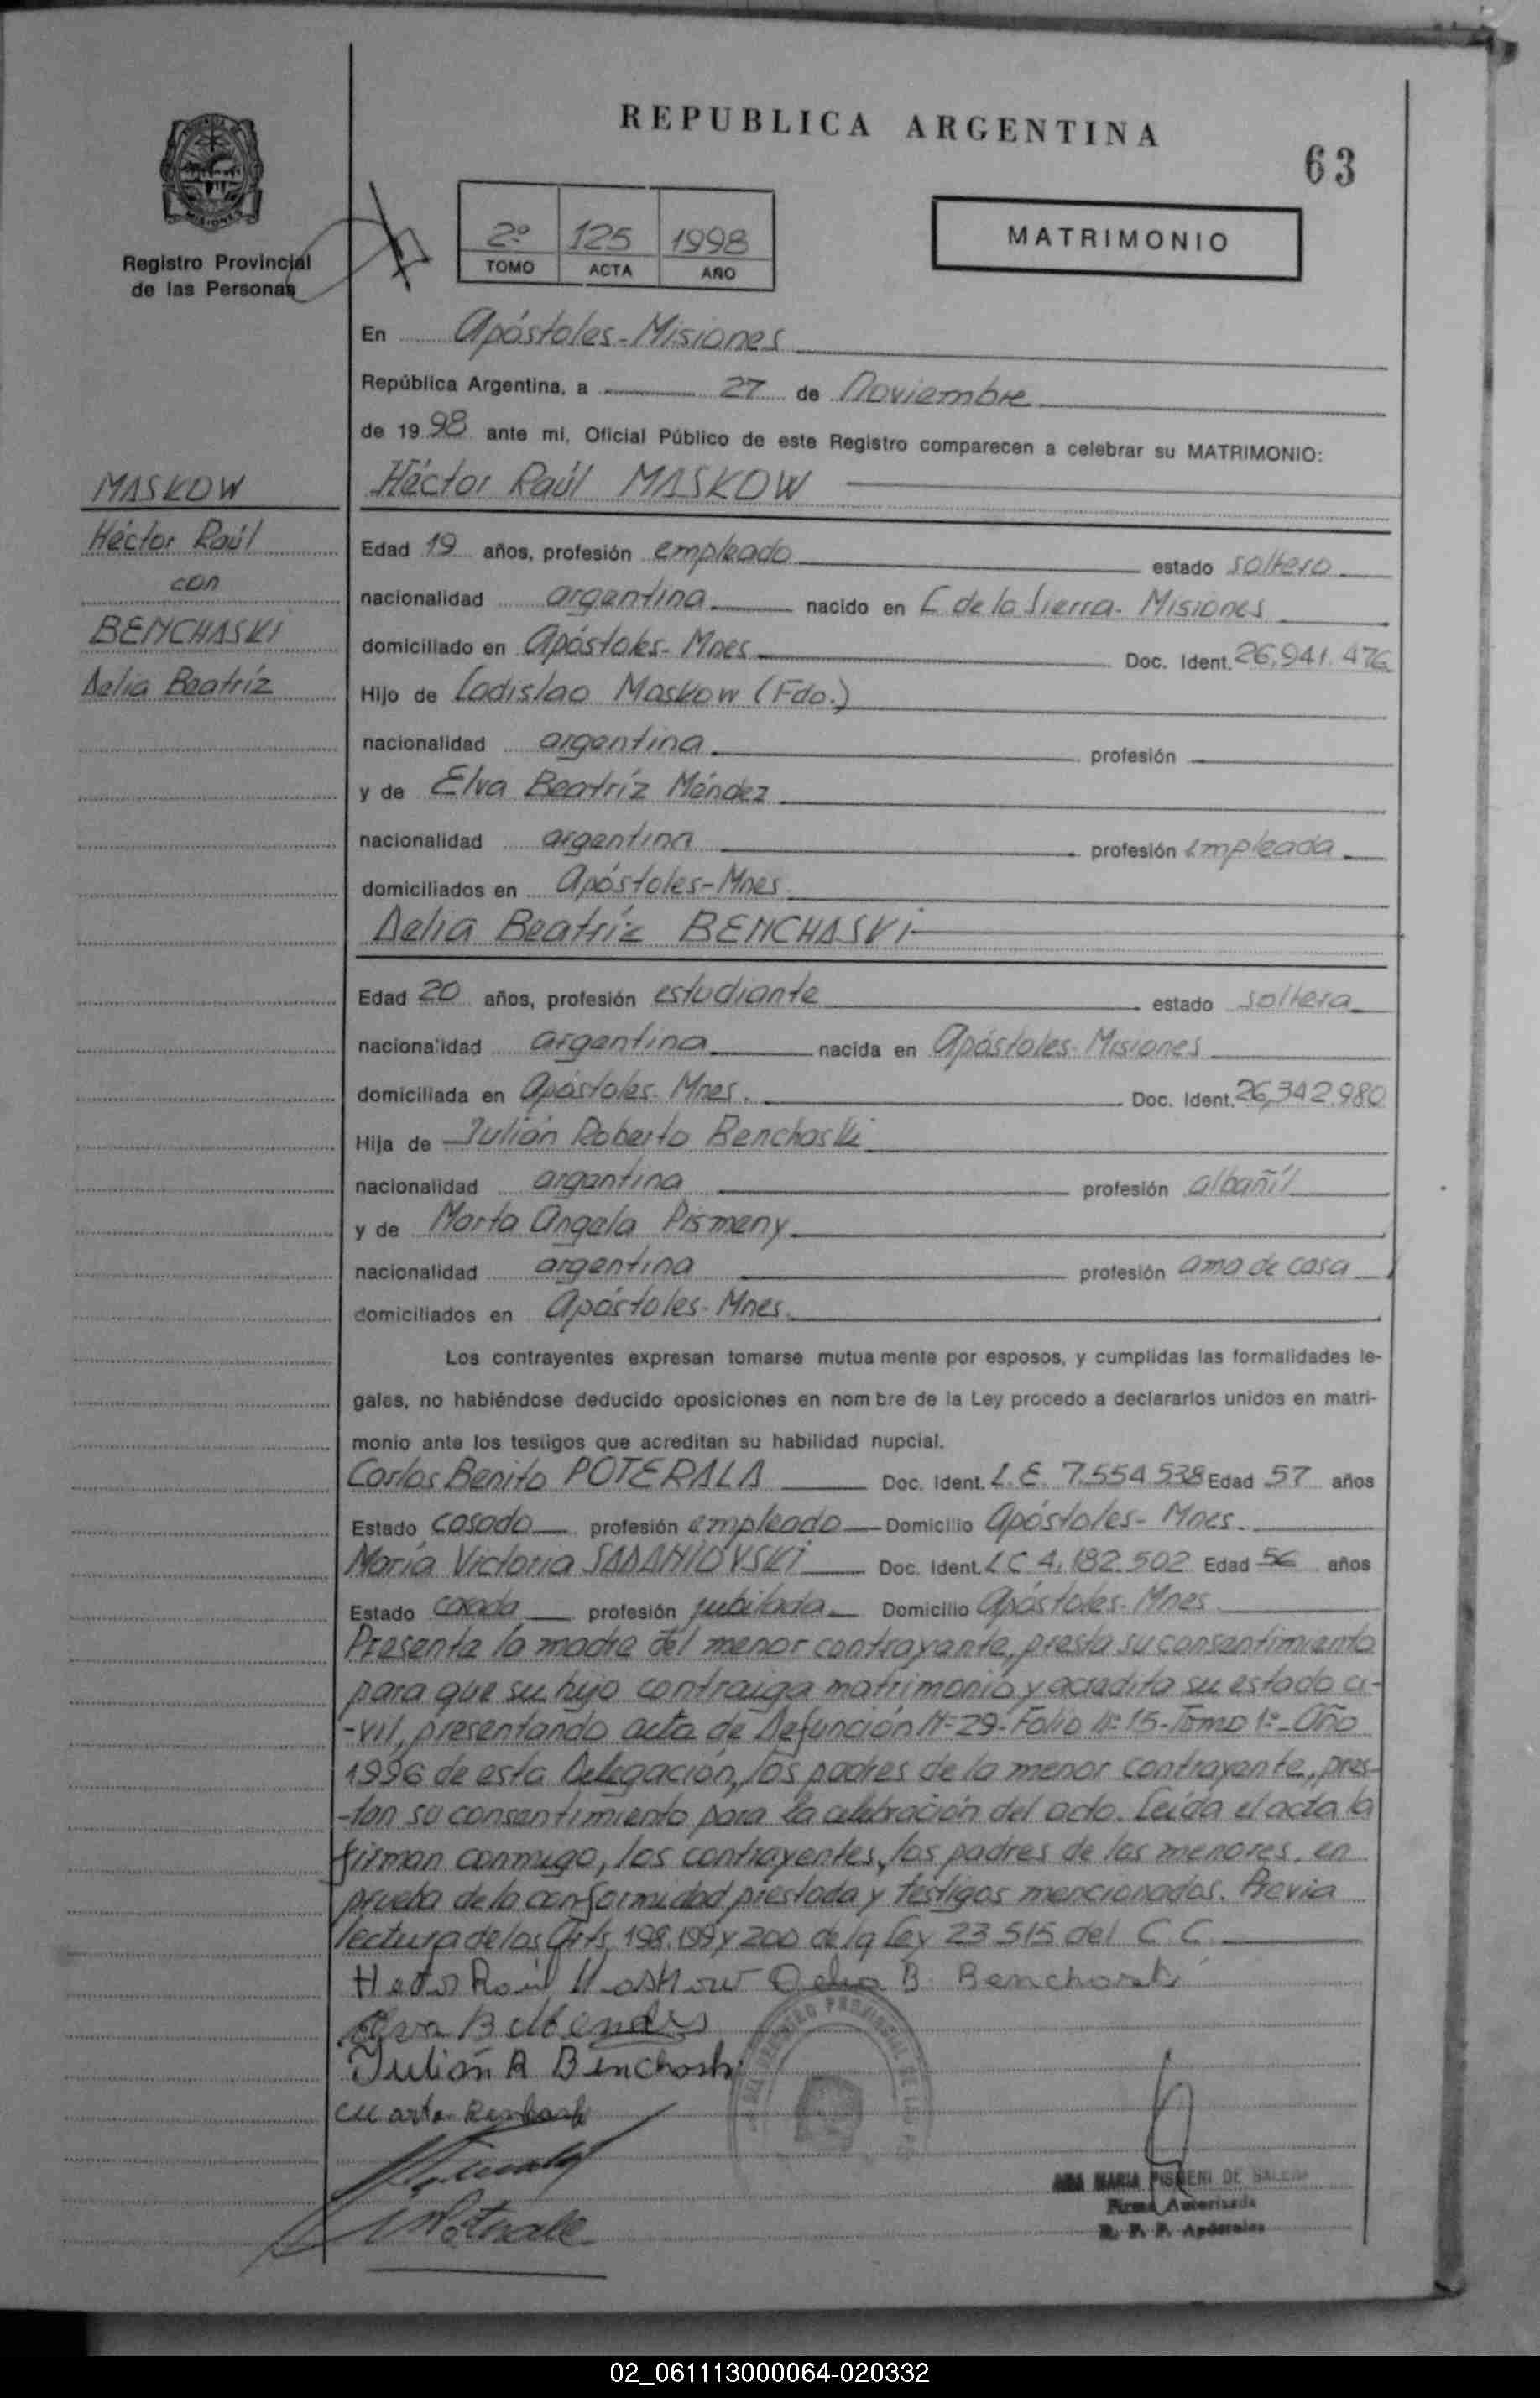 REPUBLICA ARGENTINA
63
MISIONES
Registro Provincial
de las Personas
2º 125 1998
TOMO ACTA AÑO
MATRIMONIO
En Apóstoles-Misiones
República Argentina, a 27 de Noviembre
de 1998 ante mi, Oficial Público de este Registro comparecen a celebrar su MATRIMONIO:
MASKOW
Héctor Raúl
con
BENCHASKI
Delia Beatríz
Héctor Raúl MASKOW
Edad 19 años, profesión empleado estado soltero
nacionalidad argentina nacido en C de la Sierra- Misiones
domiciliado en Apóstoles- Mnes Doc. Ident. 26.941.476
Hijo de Ladislao Maskow (Fdo.)
nacionalidad argentina profesión
y de Elva Beatríz Méndez
nacionalidad argentina profesión empleada
domiciliados en Apóstoles-Mnes
Delia Beatríz BENCHASKI
Edad 20 años, profesión estudiante estado soltera
nacionalidad argentina nacida en Apóstoles-Misiones
domiciliada en Apóstoles- Mnes. Doc. Ident. 26.342.980
Hija de Julián Roberto Benchaski
nacionalidad argentina profesión albañíl
y de Marta Angela Pismeny
nacionalidad argentina profesión ama de casa
domiciliados en Apóstoles-Mnes.
Los contrayentes expresan tomarse mutua mente por esposos, y cumplidas las formalidades le-
gales, no habiéndose deducido oposiciones en nom bre de la Ley procedo a declararlos unidos en matri-
monio ante los testigos que acreditan su habilidad nupcial.
Carlos Benito POTERALA Doc. Ident. L.E. 7.554.538 Edad 57 años
Estado casado profesión empleado Domicilio Apóstoles- Mnes.
María Victoria SADANIOVSKI Doc. Ident. LC 4.182.502 Edad 56 años
Estado casada profesión jubilada Domicilio Apóstoles-Mnes
Presente la madre del menor contrayente, presta su consentimiento
para que su hijo contraiga matrimonio y acredita su estado ci-
-vil, presentando acta de Defunción Nº 29-Folio Nº 15-Tomo 1º-Año
1996 de esta Delegación, los padres de la menor contrayente, pres-
-tan su consentimiento para la celebración del acto. Leída el acta la
firman conmigo, los contrayentes, los padres de los menores, en
prueba de la conformidad prestada y testigos mencionados. Previa
lectura de los Arts. 198, 199 y 200 de la Ley 23.515 del C.C.
Hector Raúl Maskow Delia B. Benchaski
Elva B Mendes
Julián R Benchaski
Marta
ANA MARIA PISMENI DE
Firma Autorizada
R. P. P. Apóstoles
02_061113000064-020332